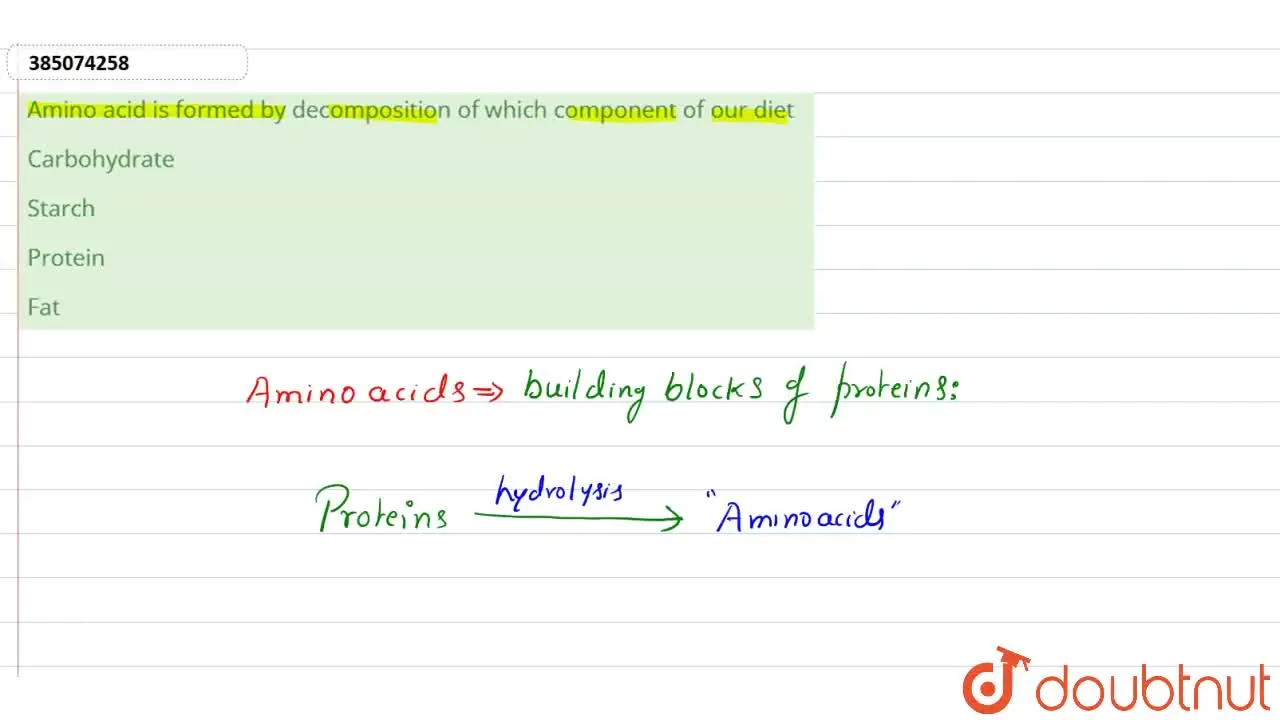 385074258
Amino acid is formed by decomposition of which component of our diet
Carbohydrate
Starch
Protein
Fat
Amino acids ⇒ building blocks of proteins:
Proteins hydrolysis → "Aminoacids"
doubtnut